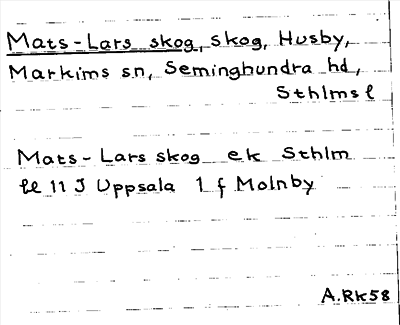 Mats-Lars skog, skog, Husby,
Markims sn, Seminghundra hd,
Sthlms l
Mats-Lars skog ek Sthlm
ll 11 J Uppsala 1 f Molnby
A.Rk58